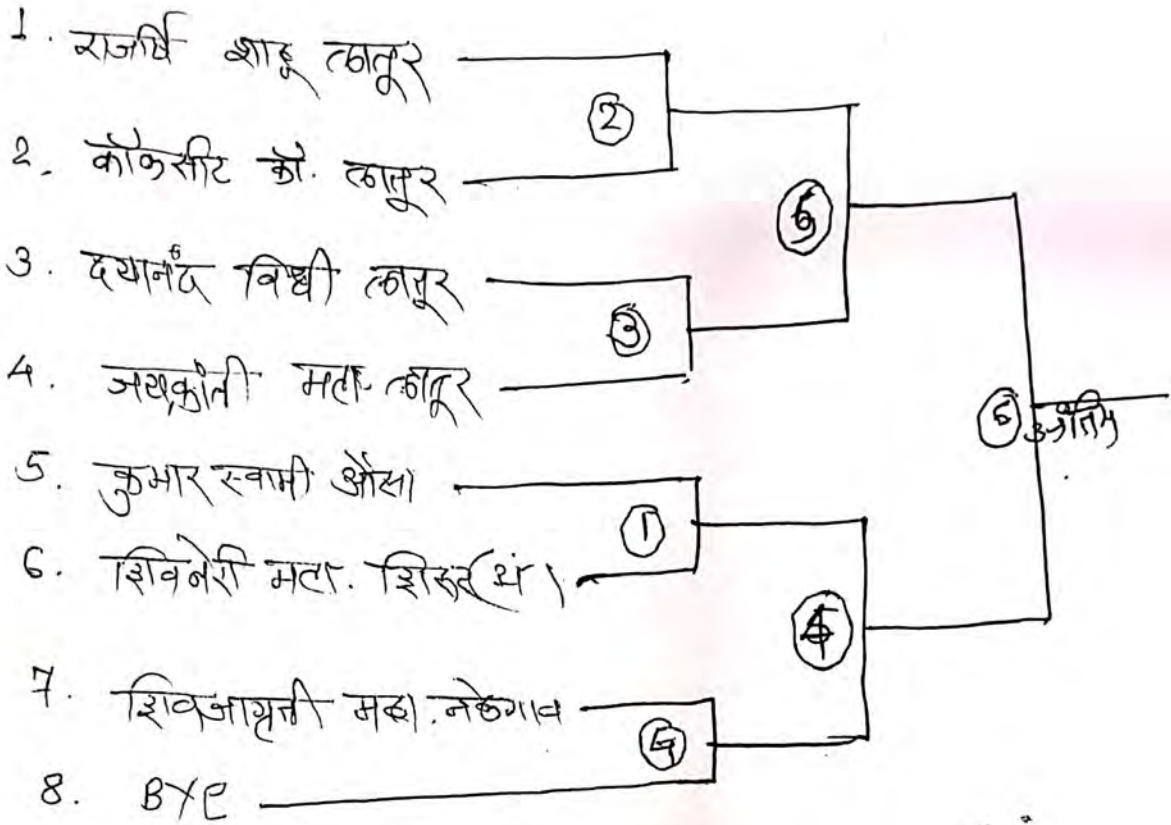 1. राजर्षि शाहू लातूर
②
2. कॉकसीट कॉ. लातूर
3. दयानंद विधी लातूर
③
4. जयक्रांती महा. लातूर
अंतिम
5. कुमार स्वामी औसा
①
6. शिवनेरी महा. शिरूर
7. शिवजागृती महा. नळेगाव
8. BYE